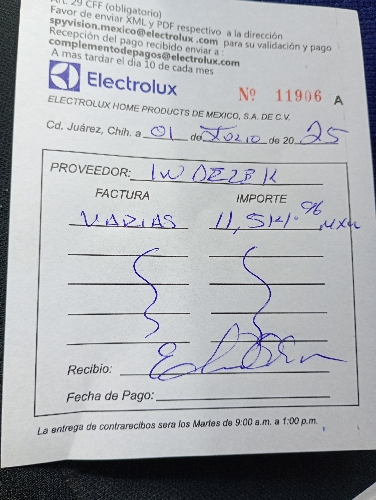 Art. 29 CFF (obligatorio)
Favor de enviar XML y PDF respectivo a la dirección
spyvision.mexico@electrolux.com para su validación y pago
Recepción del pago recibido enviar a:
complementodepagos@electrolux.com
A mas tardar el dia 10 de cada mes
Electrolux
Nº 11906 A
ELECTROLUX HOME PRODUCTS DE MEXICO, S.A. DE C.V.
Cd. Juárez, Chih. a 01 de Julio de 2025
PROVEEDOR:
FACTURA IMPORTE
VARIAS MXN
Recibio:
Fecha de Pago:
La entrega de contrarecibos sera los Martes de 9:00 a.m. a 1:00 p.m.